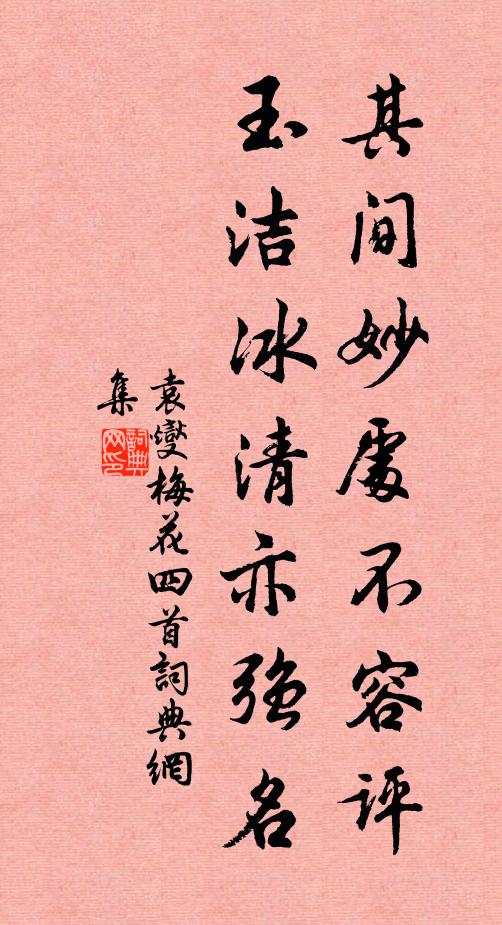 其间妙處不容評
玉洁冰清亦强名
袁燮梅花四首詞典網
集
詞典
网印